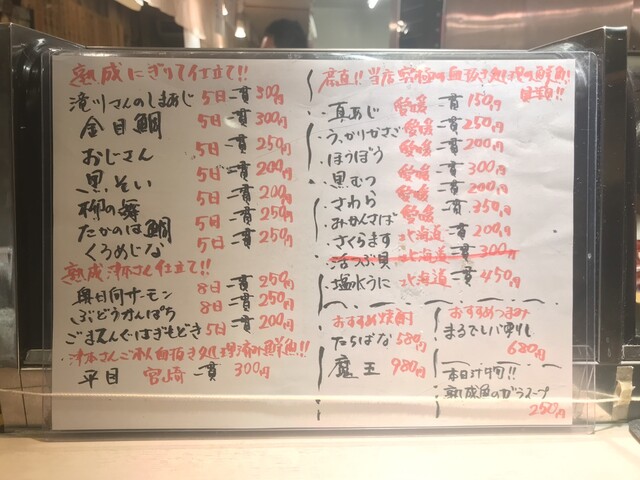 熟成にぎりて仕立て!!
滝川さんのしまあじ 5日 一貫 300円
金目鯛 5日 一貫 300円
おじさん 5日 一貫 250円
黒そい 5日 一貫 200円
柳の舞 5日 一貫 200円
たかのは鯛 5日 一貫 250円
くろめじな 5日 一貫 250円
熟成 津本さん仕立て!!
奥日向サーモン 8日 一貫 250円
ぶどうかんぱち 8日 一貫 250円
ごまてんぐはぎもどき 5日 一貫 200円
津本さんご本人血抜き処理済み鮮魚!!
平目 宮崎 一貫 300円
産直!! 当店究極の血抜き処理の鮮魚!
貝類!!
真あじ 愛媛 一貫 150円
うっかりかさご 愛媛 一貫 250円
ほうぼう 愛媛 一貫 200円
黒むつ 愛媛 一貫 300円
さわら 愛媛 一貫 200円
みかんさば 愛媛 一貫 350円
さくらます 北海道 一貫 200円
活つぶ貝 北海道 一貫 300円
塩水うに 北海道 一貫 450円
おすすめ焼酎
たちばな 580円
魔王 980円
おすすめつまみ
680円
本日汁物!!
熟成魚のガラスープ
250円